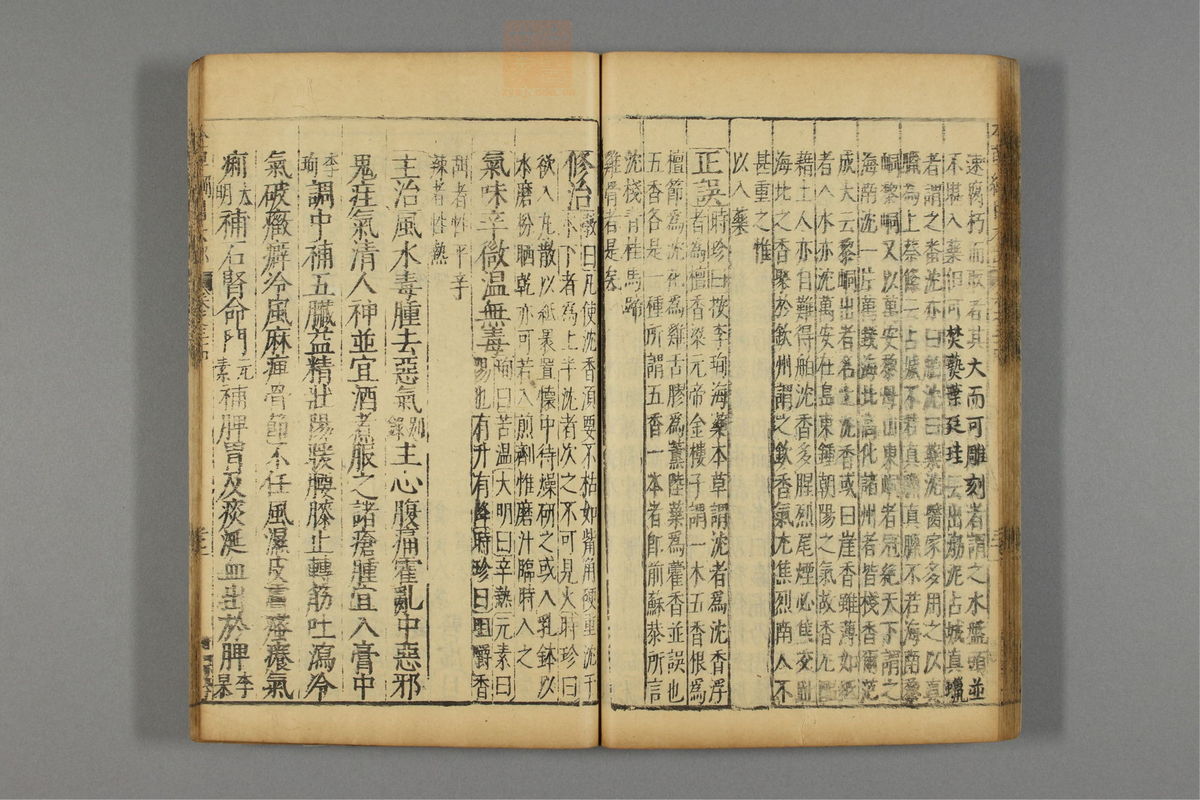 速腐朽而取者其大而可雕刻者謂之水盤頭並
不堪入藥但可焚爇葉廷珪云出渤泥占城真臘
者謂之番沈亦曰舶沈曰藥沈醫家多用之以真
臘為上蔡絛云占城不若真臘真臘不若海南黎
峒黎峒又以萬安黎母山東峒者冠絕天下謂之
海南沈一片萬錢海北高化諸州者皆棧香爾范
成大云黎峒出者名土沈香或曰崖香雖薄如紙
者入水亦沈萬安在島東鍾朝陽之氣故香尤
藉土人亦自難得舶沈香多腥烈尾煙必焦交趾
海北之香聚於欽州謂之欽香氣尤焦烈南人不
甚重之惟
以入藥
正誤時珍曰按李珣海藥本草謂沈者為沈香浮
者為檀香梁元帝金樓子謂一木五香根為
檀節為沈花為雞舌膠為薰陸葉為藿香並誤也
五香各是一種所謂五香一本者即前蘇恭所言
沈棧青桂馬蹄
雞骨者是矣
修治斅曰凡使沈香須要不枯如觜角硬重沈于
水下者為上半沈者次之不可見火時珍曰
欲入丸散以紙裹置懷中待燥研之或入乳鉢以
水磨粉晒乾亦可若入煎劑惟磨汁臨時入之
氣味辛微温無毒珣曰苦温大明曰辛熱元素曰
陽也有升有降時珍曰咀嚼香
甜者性平辛
辣者性熱
主治風水毒腫去惡氣别錄主心腹痛霍亂中惡邪
鬼疰氣清人神並宜酒煮服之諸瘡腫宜入膏中
李珣調中補五臟益精壯陽暖腰膝止轉筋吐瀉冷
氣破癥癖冷風麻痺骨節不任風濕皮膚瘙癢氣
痢大明補右腎命門元素補脾胃及痰涎血出於脾李杲